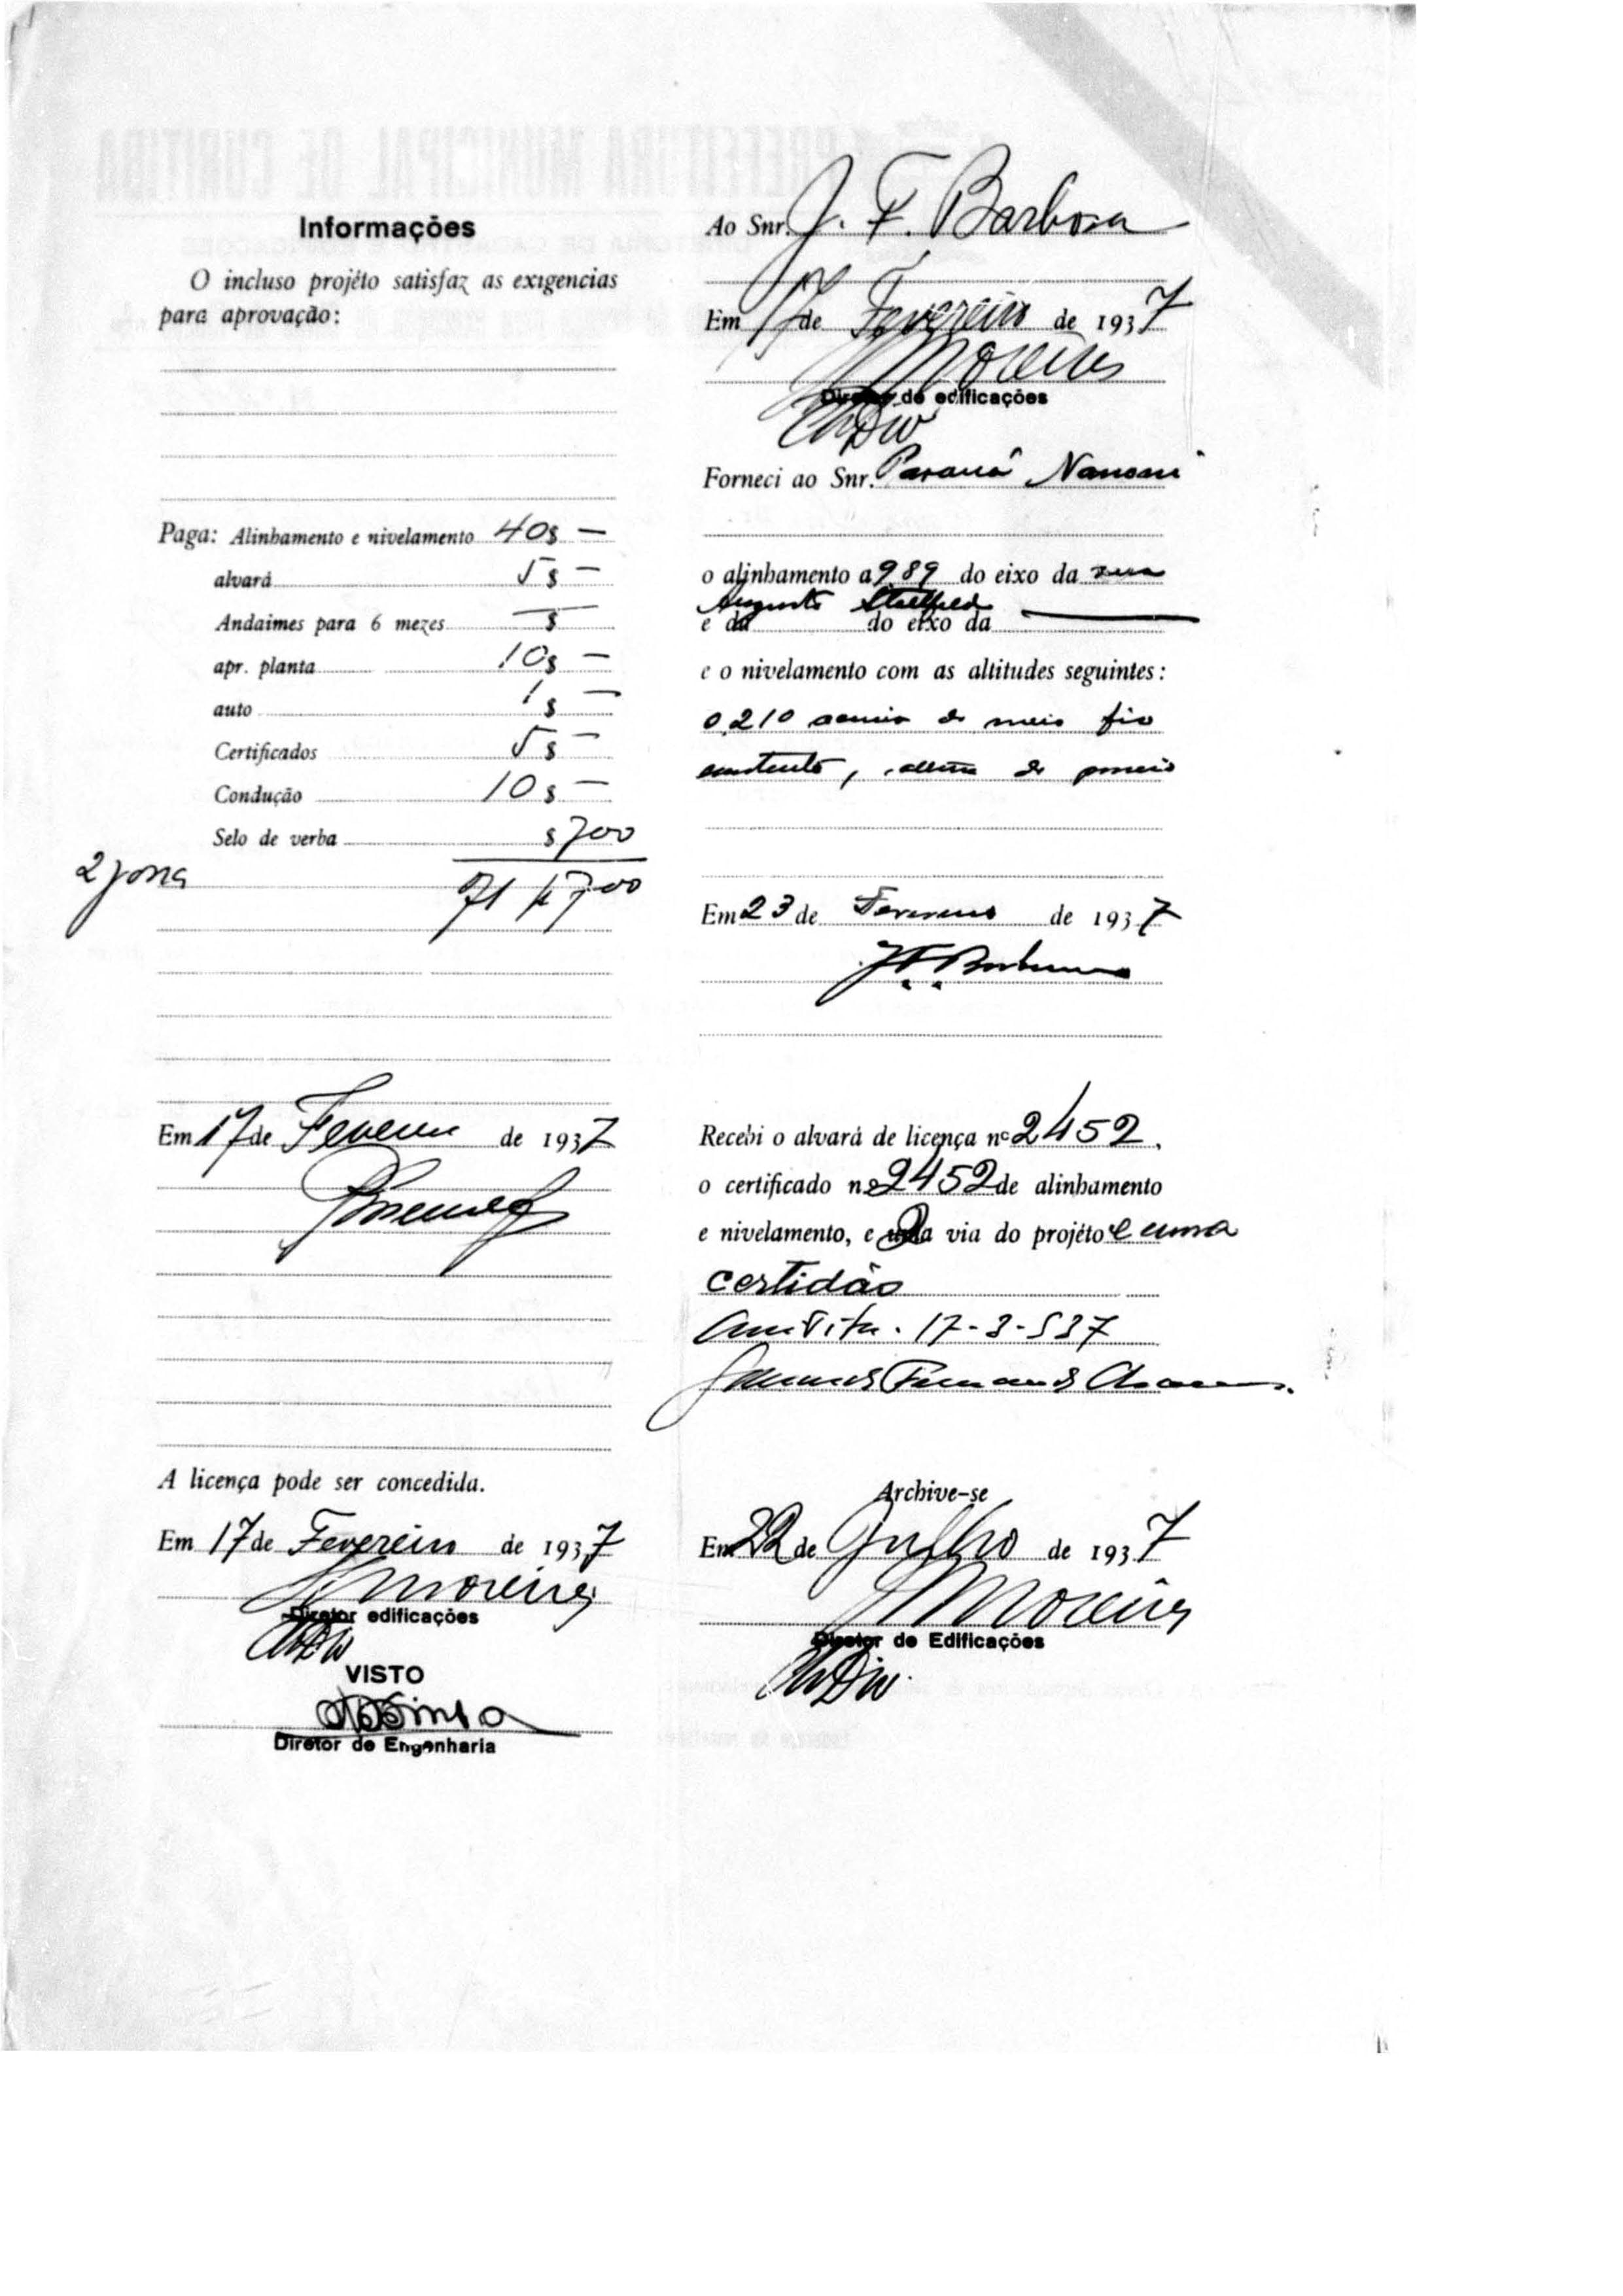 Informações
O incluso projéto satisfaz as exigencias
para aprovação:
Paga: Alinhamento e nivelamento 40$ —
alvará 5$ —
Andaimes para 6 mezes —$—
apr. planta 10$ —
auto 1$ —
Certificados 5$ —
Condução 10$ —
Selo de verba $700
2 zona
71$700
Em 17 de Fevereiro de 1937
A licença pode ser concedida.
Em 17 de Fevereiro de 1937
Moreira
Diretor edificações
VISTO
Diretor de Engenharia
Ao Snr. J. F. Barbosa
Em 17 de Fevereiro de 1937
Moreira
Diretor de edificações
Forneci ao Snr. Paraná
o alinhamento a 989 do eixo da rua
Augusto Stellfeld
e da do eixo da —
e o nivelamento com as altitudes seguintes:
0,210 acima do meio fio
Em 23 de Fevereiro de 1937
J. F. Barbosa
Recebi o alvará de licença nº 2452,
o certificado nº 2452 de alinhamento
e nivelamento, e 2a via do projéto e uma
certidão
17-3-937
Archive-se
Em 22 de Julho de 1937
Moreira
Diretor de Edificações
PREFEITURA MUNICIPAL DE CURITIBA